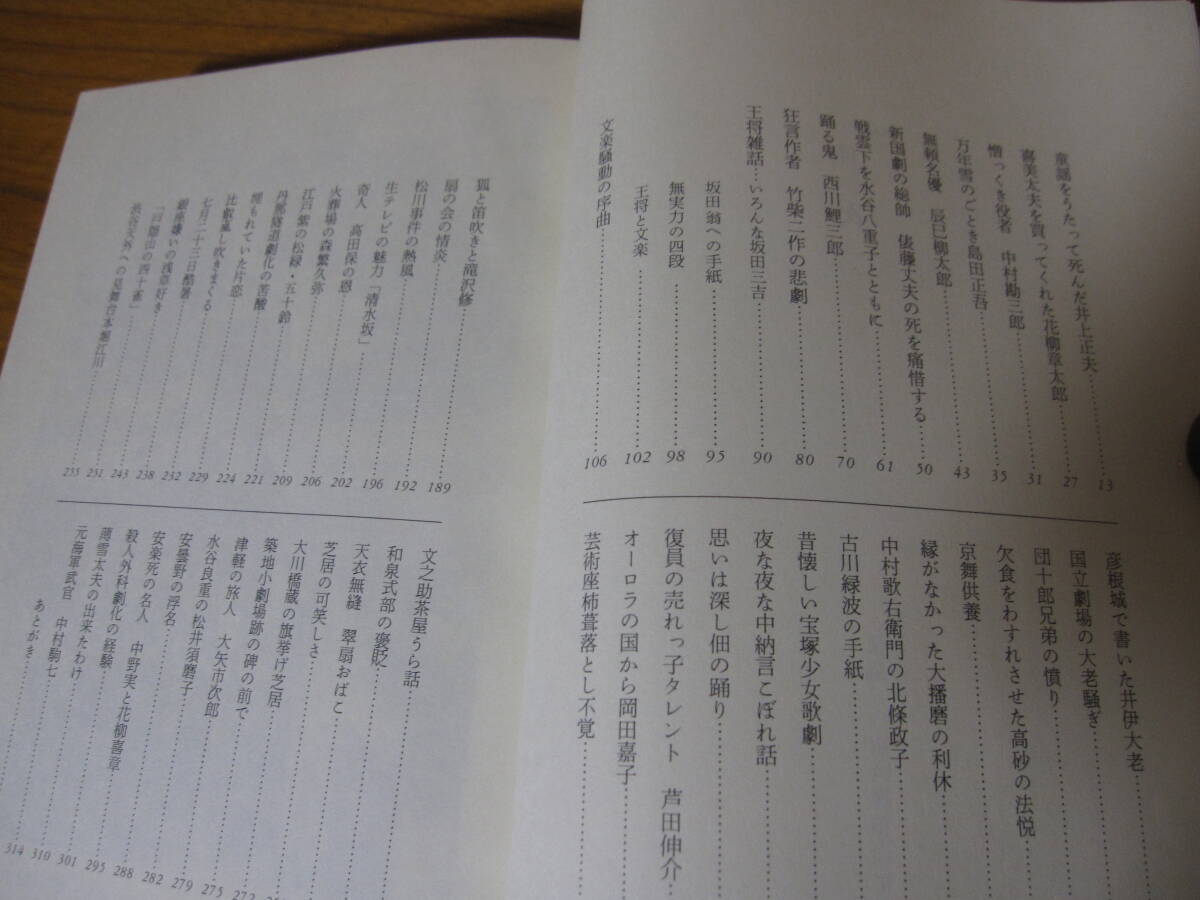 童謡をうたって死んだ井上正夫……13
喜美太夫を買ってくれた花柳章太郎……27
憎っくき役者　中村勘三郎……31
万年雪のごとき島田正吾……35
無頼名優　辰巳柳太郎……43
新国劇の総帥　俵藤丈夫の死を痛惜する……50
戦雲下を水谷八重子とともに……61
踊る鬼　西川鯉三郎……70
狂言作者　竹柴二作の悲劇……80
王将雑話…いろんな坂田三吉……90
坂田翁への手紙……95
無実力の四段……98
王将と文楽……102
文楽騒動の序曲……106
彦根城で書いた井伊大老……
国立劇場の大老騒ぎ……
団十郎兄弟の憤り……
欠食をわすれさせた高砂の法悦……
京舞供養……
縁がなかった大播磨の利休……
中村歌右衛門の北條政子……
古川緑波の手紙……
昔懐しい宝塚少女歌劇……
夜な夜な中納言こぼれ話……
思いは深し佃の踊り……
復員の売れっ子タレント　芦田伸介……
オーロラの国から岡田嘉子……
芸術座柿葺落とし不覚……
狐と笛吹きと滝沢修……189
扇の会の情炎……192
松川事件の熱風……196
生テレビの魅力「清水坂」……202
奇人　高田保の恩……206
火葬場の森繁久弥……209
江戸紫の松緑・五十鈴……221
丹那隧道劇化の苦酸……224
埋もれていた片恋……229
比叡颪し吹きまくる……232
七月二十三日酷暑……238
銀座嫌いの浅草好き……243
「臼隠山の四十雀」……251
渋谷天外への見舞台本堀江川……255
文之助茶屋うら話……
和泉式部の褒貶……
天衣無縫　翠扇おばこ……
芝居の可笑しさ……
大川橋蔵の旗挙げ芝居……
築地小劇場跡の碑の前で……
津軽の旅人　大矢市次郎……
水谷良重の松井須磨子……275
安曇野の浮名……279
安楽死の名人　中野実と花柳喜章……282
殺人外科劇化の経験……288
薄雪太夫の出来たわけ……295
元海軍武官　中村駒七……301
あとがき……310
314